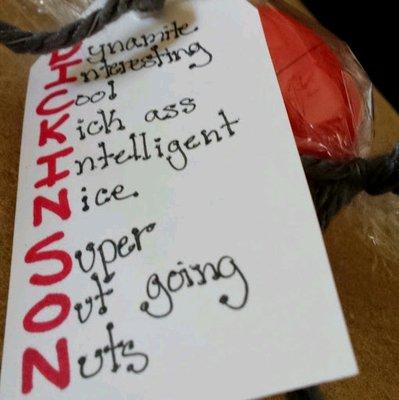 Dynamite
Interesting
Cool
Kick ass
Intelligent
Nice.
Super
Out going
Nuts